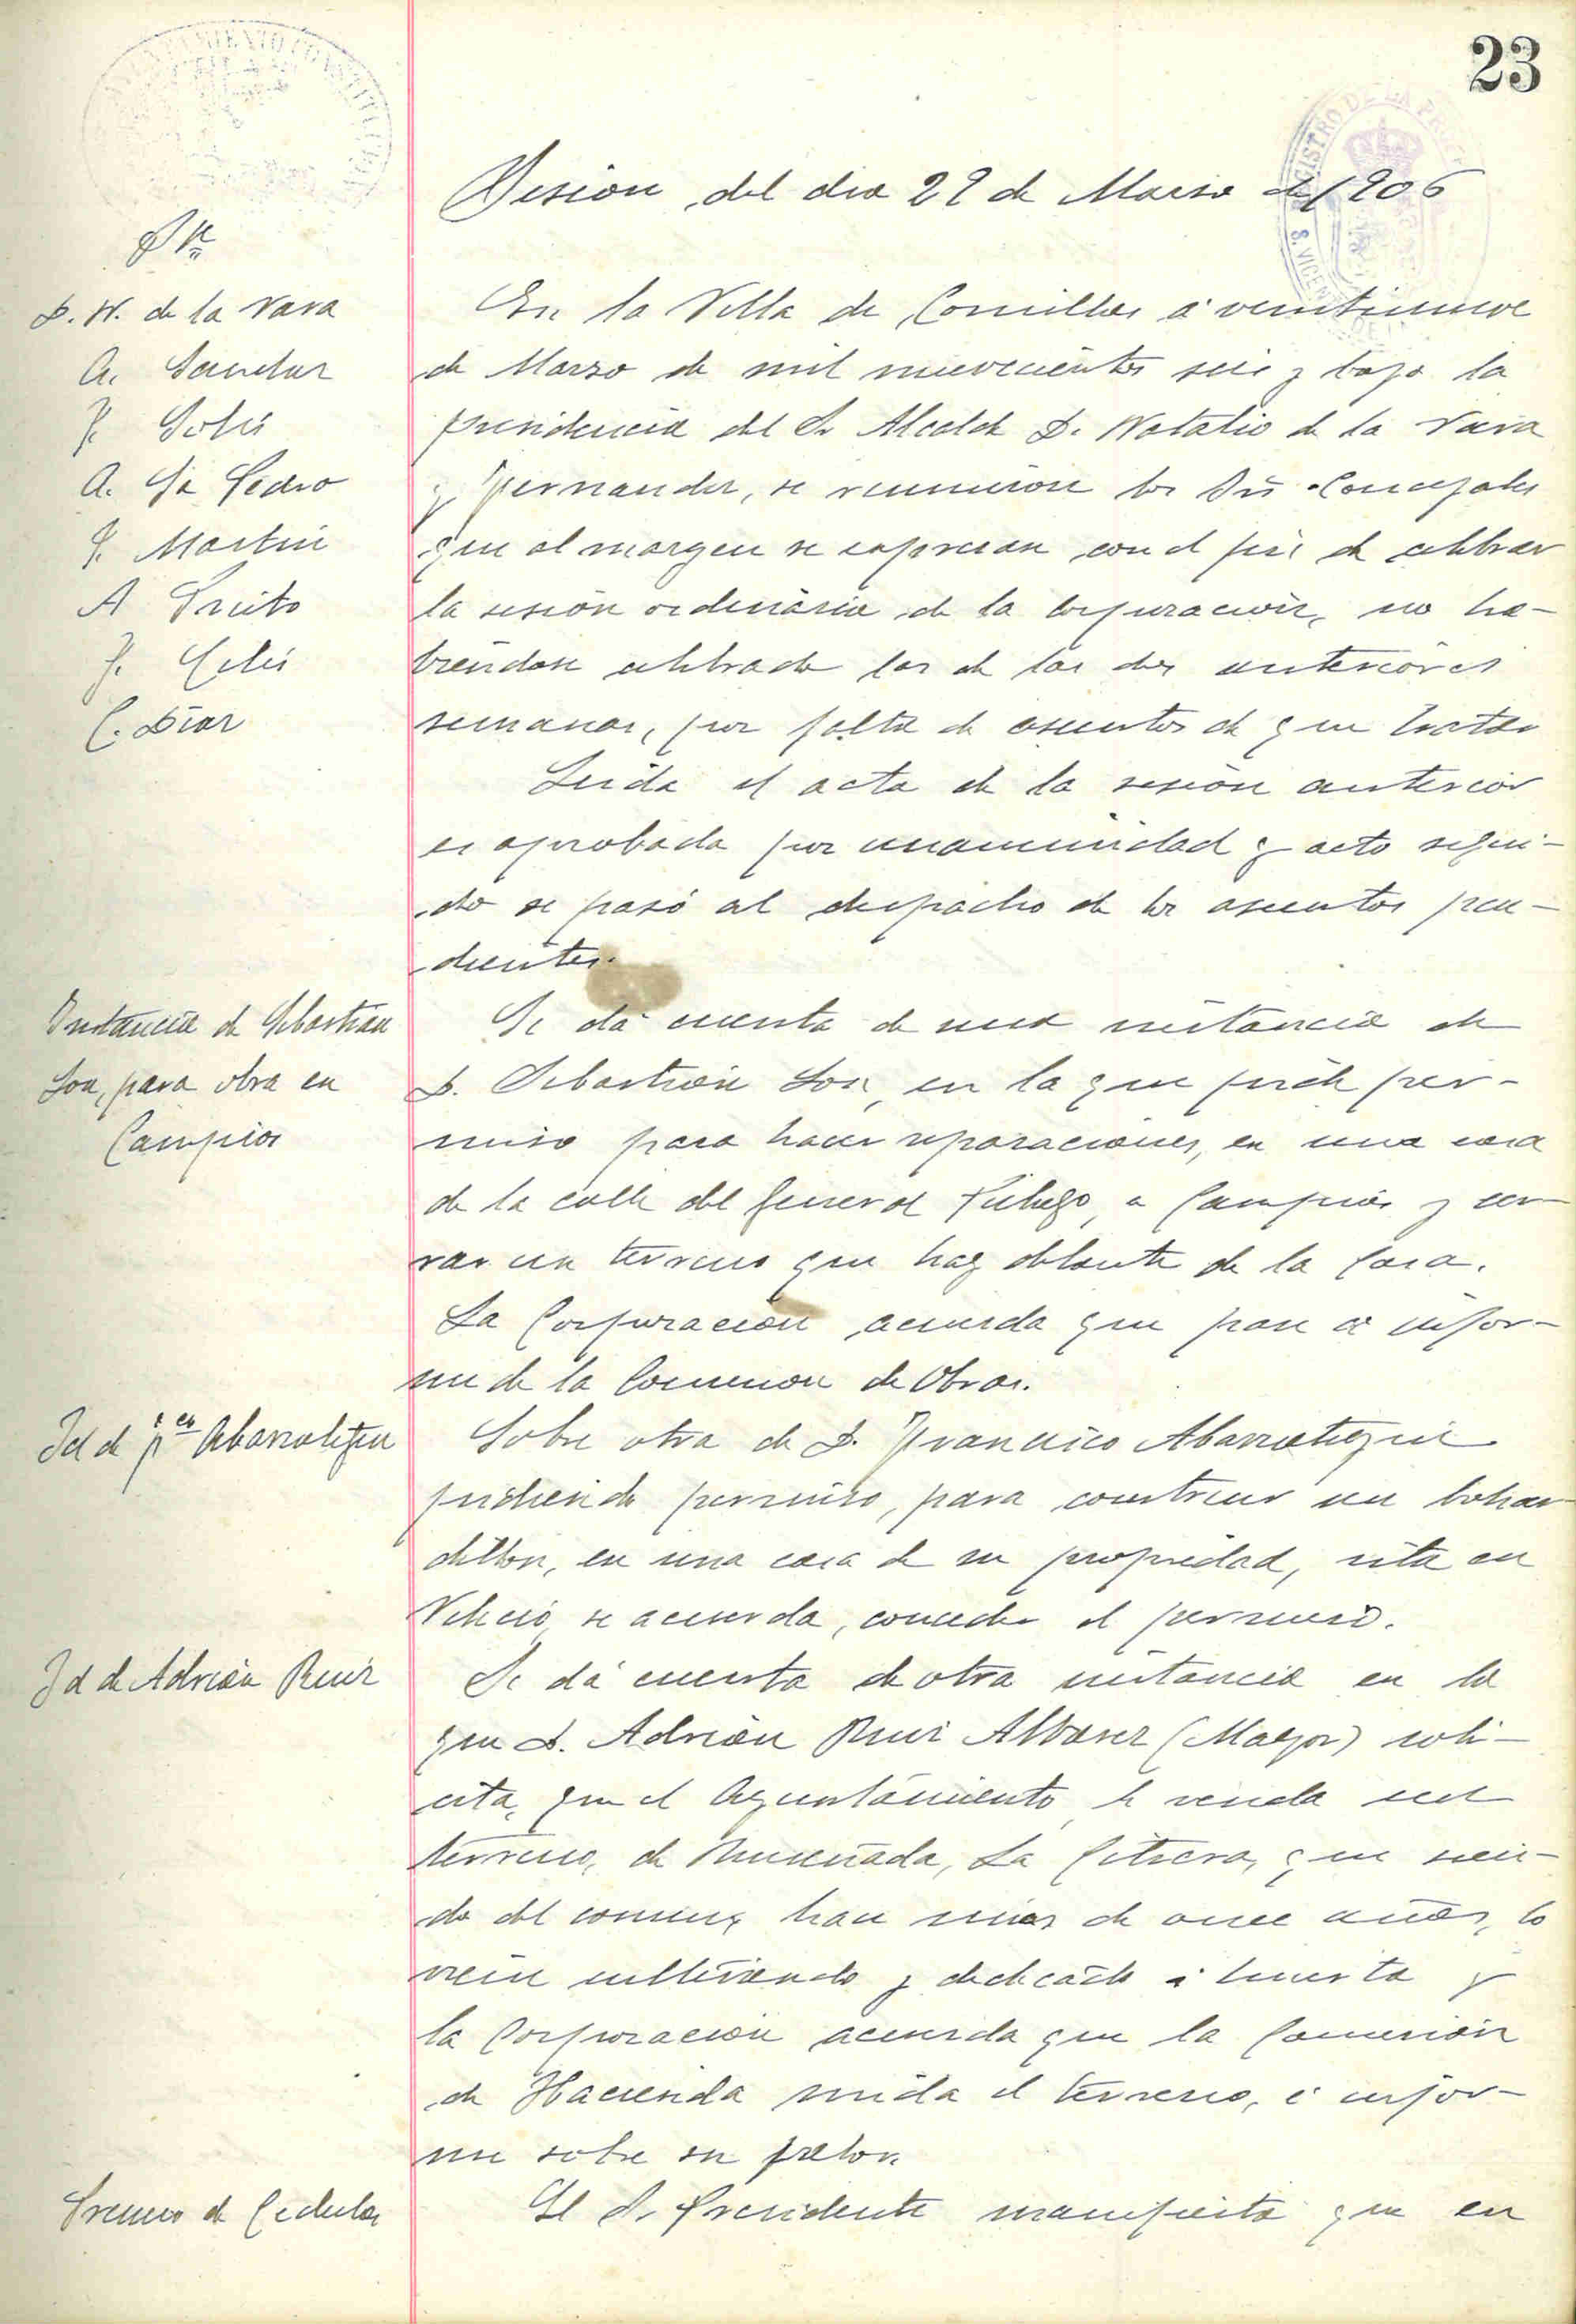 23
Sesion del dia 29 de Marzo de 1906
Sres
D. N. de la Vara
A. Sanchez
F. Solis
A. Gª Pedro
J. Martin
A Prieto
J. Celis
C. Diaz
En la Villa de Comillas á veintinueve
de Marzo de mil novecientos seis y bajo la
presidencia del Sr Alcalde D. Natalio de la Vara
y Fernandez, se reunieron los Srs Concejales
que al margen se expresan con el fin de celebrar
la sesión ordinaria de la Corporación, no ha-
biendose celebrado las de las dos anteriores
semanas, por falta de asuntos de que tratar
Leida el acta de la sesión anterior
es aprobada por unanimidad y acto segui-
do se pasó al despacho de los asuntos pen-
dientes.
Instancia de Sebastián
Son, para obra en
Campios
Se dá cuenta de una instancia de
D. Sebastián Son, en la que pide per-
miso para hacer reparaciones, en una casa
de la calle del General Piélago, a Campios y cer-
rar un terreno que hay delante de la casa.
La Corporación acuerda que pase a infor-
me de la Comision de Obras.
Id de Fco Abarrategui
Sobre otra de D. Francisco Abarrategui
pidiendo permiso, para construir un bohar-
dillon, en una casa de su propiedad, sita en
Velecio, se acuerda, conceder el permiso.
Id de Adrián Ruiz
Se dá cuenta de otra instancia en la
que D. Adrián Ruiz Alvarez (Mayor) soli-
cita, que el Ayuntamiento le venda un
terreno, de Ruiseñada, La Citrera, que sien-
do del comun, hace más de once años, lo
viene cultivando y dedicado á huerta y
la Corporacion acuerda que la Comisión
de Hacienda mida el terreno, é infor-
me sobre su valor.
Premio de Cedulas
El Sr Presidente manifiesta que en